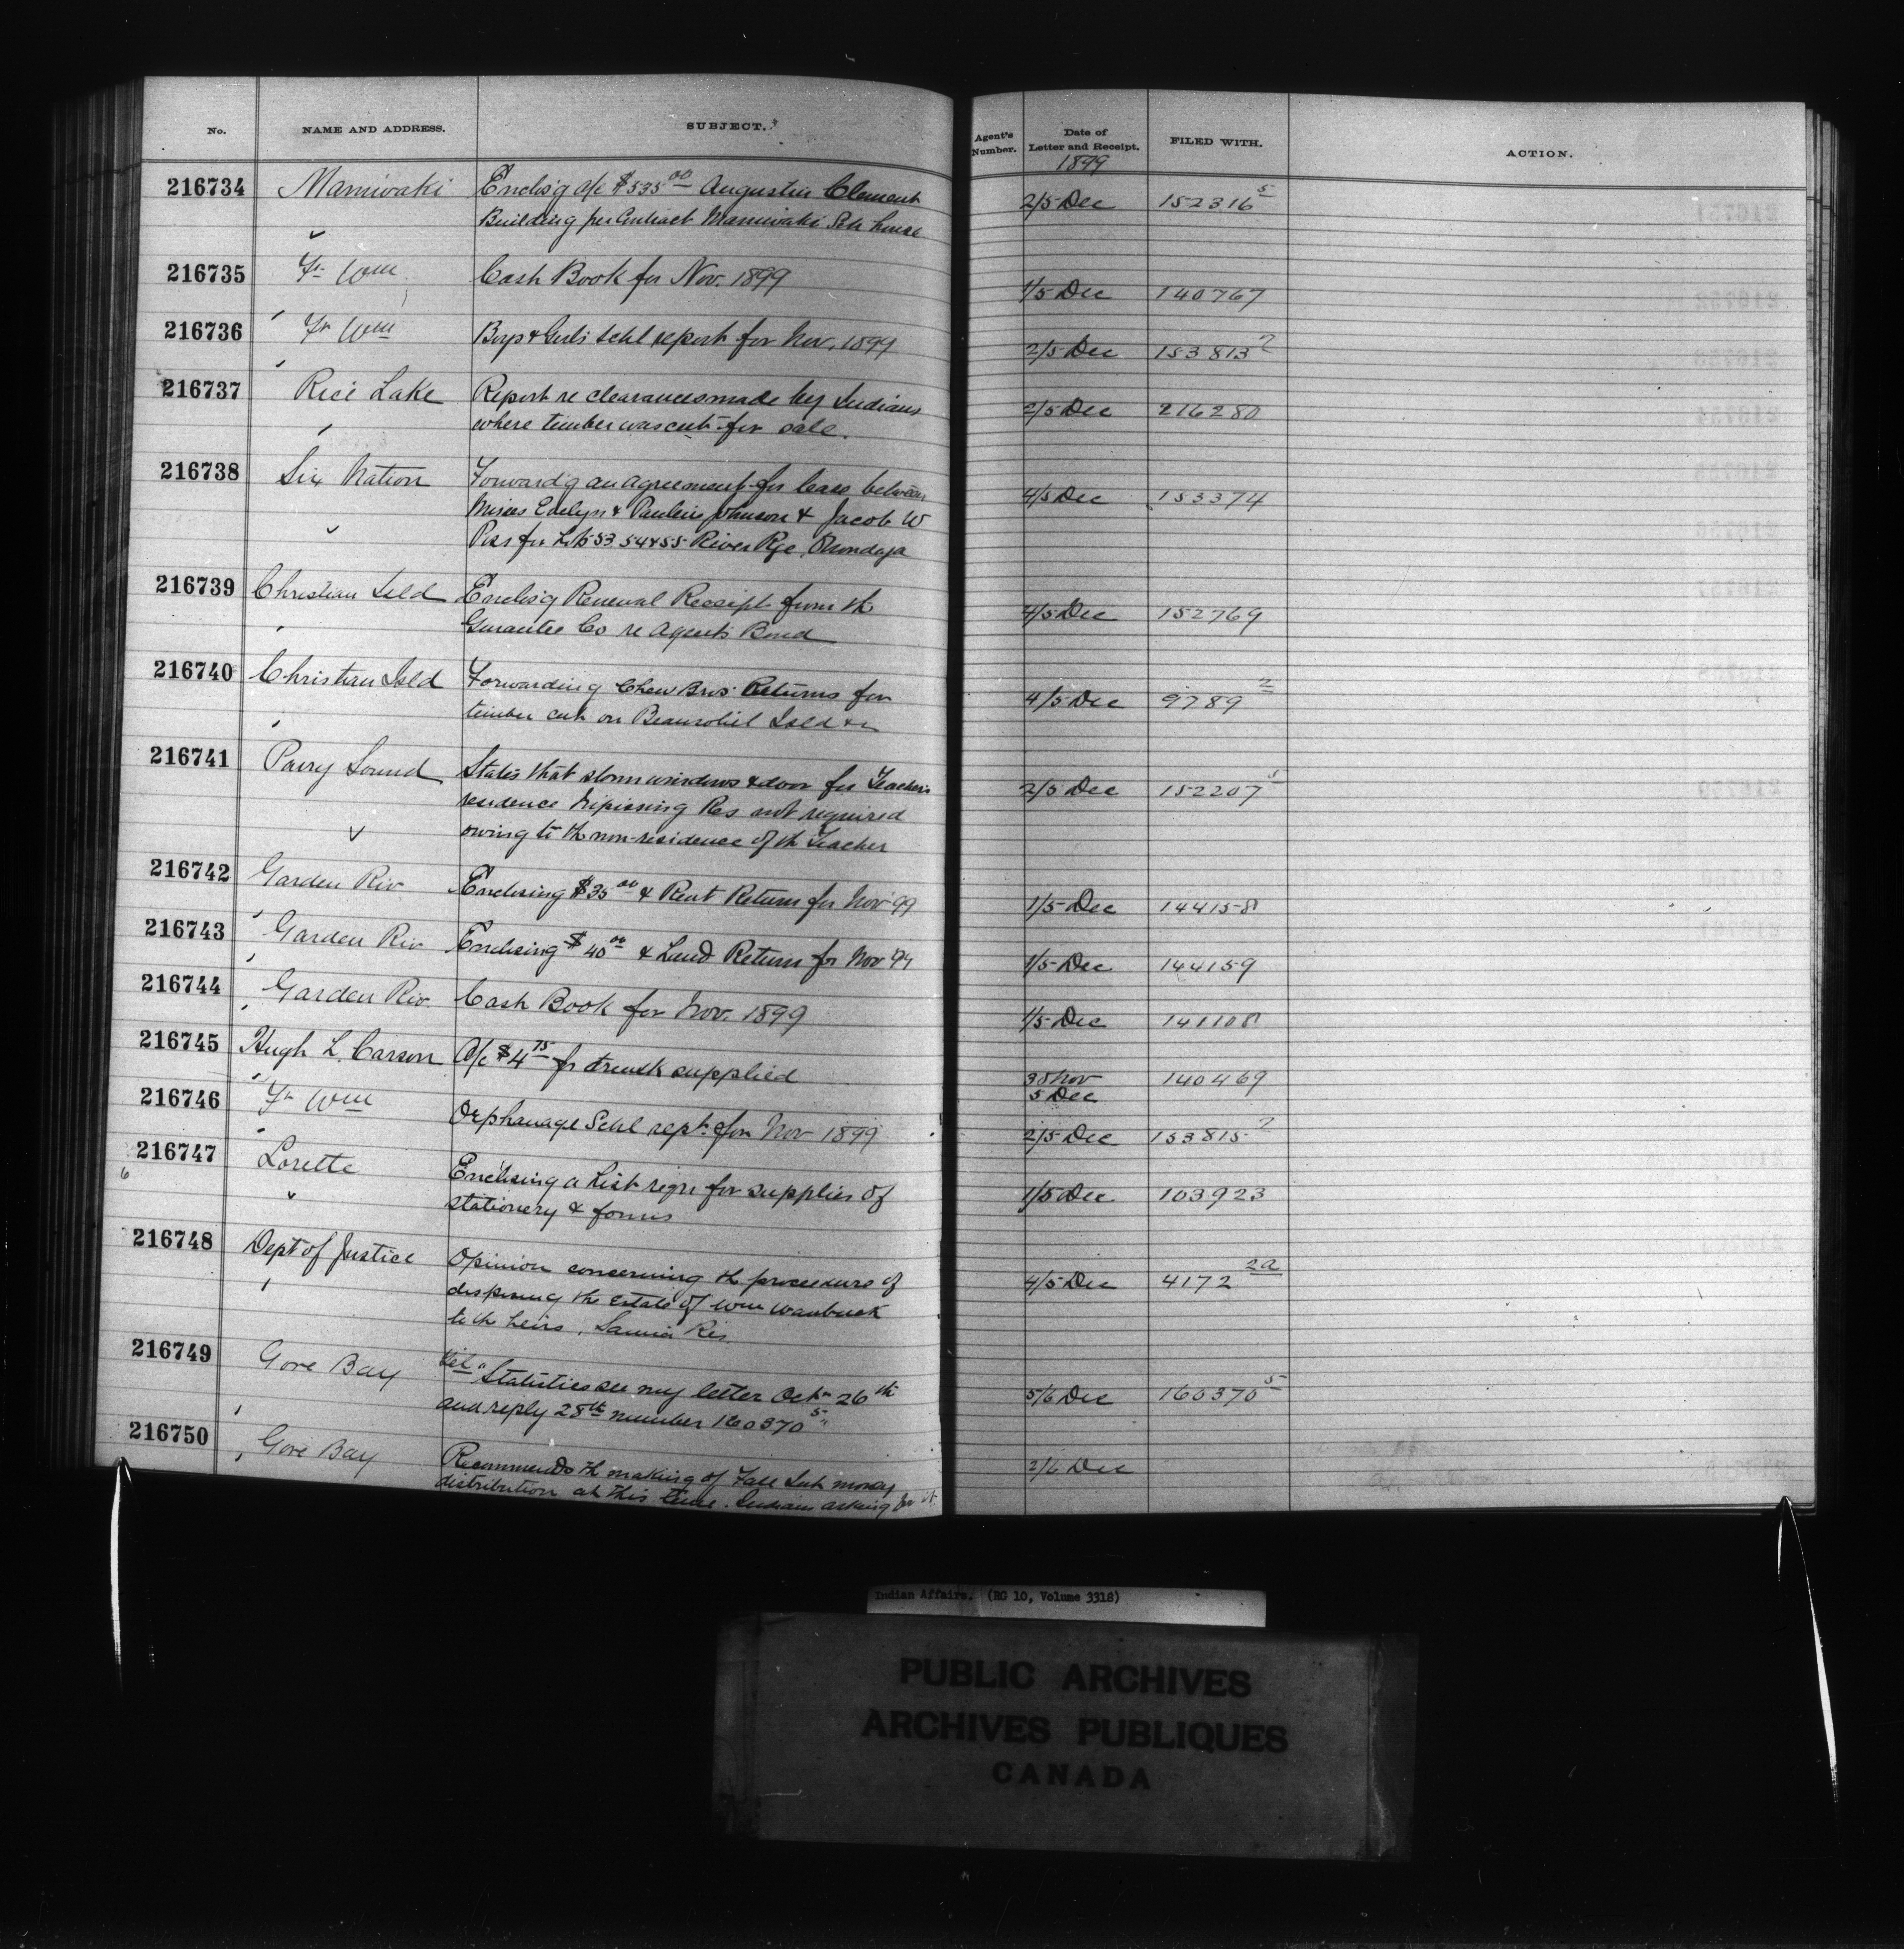 No. NAME AND ADDRESS. SUBJECT. Agent's Number. Date of Letter and Receipt. FILED WITH. ACTION.
1899
216734 Maniwaki Enclos'g a/c $535.00 Augustin Clement 2/5 Dec 152316 5
Building per Contract Maniwaki Sch house
216735 Ft Wm Cash Book for Nov. 1899 1/5 Dec 140767
216736 Ft Wm Boys & Girls Schl report for Nov. 1899 2/5 Dec 153813 2
216737 Rice Lake Report re clearances made by Indians 2/5 Dec 216280
where timber was cut for sale.
216738 Six Nation Forward'g an agreement for lease between 4/5 Dec 153374
Misses Evelyn & Pauline Johnson & Jacob W
for Lots 53 54 & 55 River Rge, Onondaga
216739 Christian Isld Enclos'g Renewal Receipt from th 4/5 Dec 152769
Gurantee Co re Agents Bond
216740 Christian Isld Forwarding Chew Bros Returns for 4/5 Dec 9789 2
timber cut on Beausoliel Isld &c
216741 Parry Sound States that storm windows & door for Teachers 2/5 Dec 152207 5
residence Nipissing Res not required
owing to th non-residence of th Teacher
216742 Garden Riv Enclosing $35.00 & Rent Return for Nov 99 1/5 Dec 144158
216743 Garden Riv Enclosing $40.00 & Land Return for Nov 99 1/5 Dec 144159
216744 Garden Riv. Cash Book for Nov. 1899 1/5 Dec 141108
216745 Hugh L. Carson A/c $4.75 for trunk supplied 30 Nov 140469
5 Dec
216746 Ft Wm Orphanage Schl rept. for Nov 1899 2/5 Dec 153815 2
216747 Lorette Enclosing a List reqn for supplies of 1/5 Dec 103923
6 stationery & forms
216748 Dept of Justice Opinion concerning th procedure of 4/5 Dec 4172 2a
disposing the estate of Wm Wawbuck
to th heirs, Sarnia Res
216749 Gore Bay Tel "Statistics see my letter Oct 26th 5/6 Dec 160370 5
and reply 28th number 160370 5"
216750 Gore Bay Recommends th making of Fall Int money 2/6 Dec
distribution at this time. Indians asking for it.
Indian Affairs. (RG 10, Volume 3318)
PUBLIC ARCHIVES
ARCHIVES PUBLIQUES
CANADA